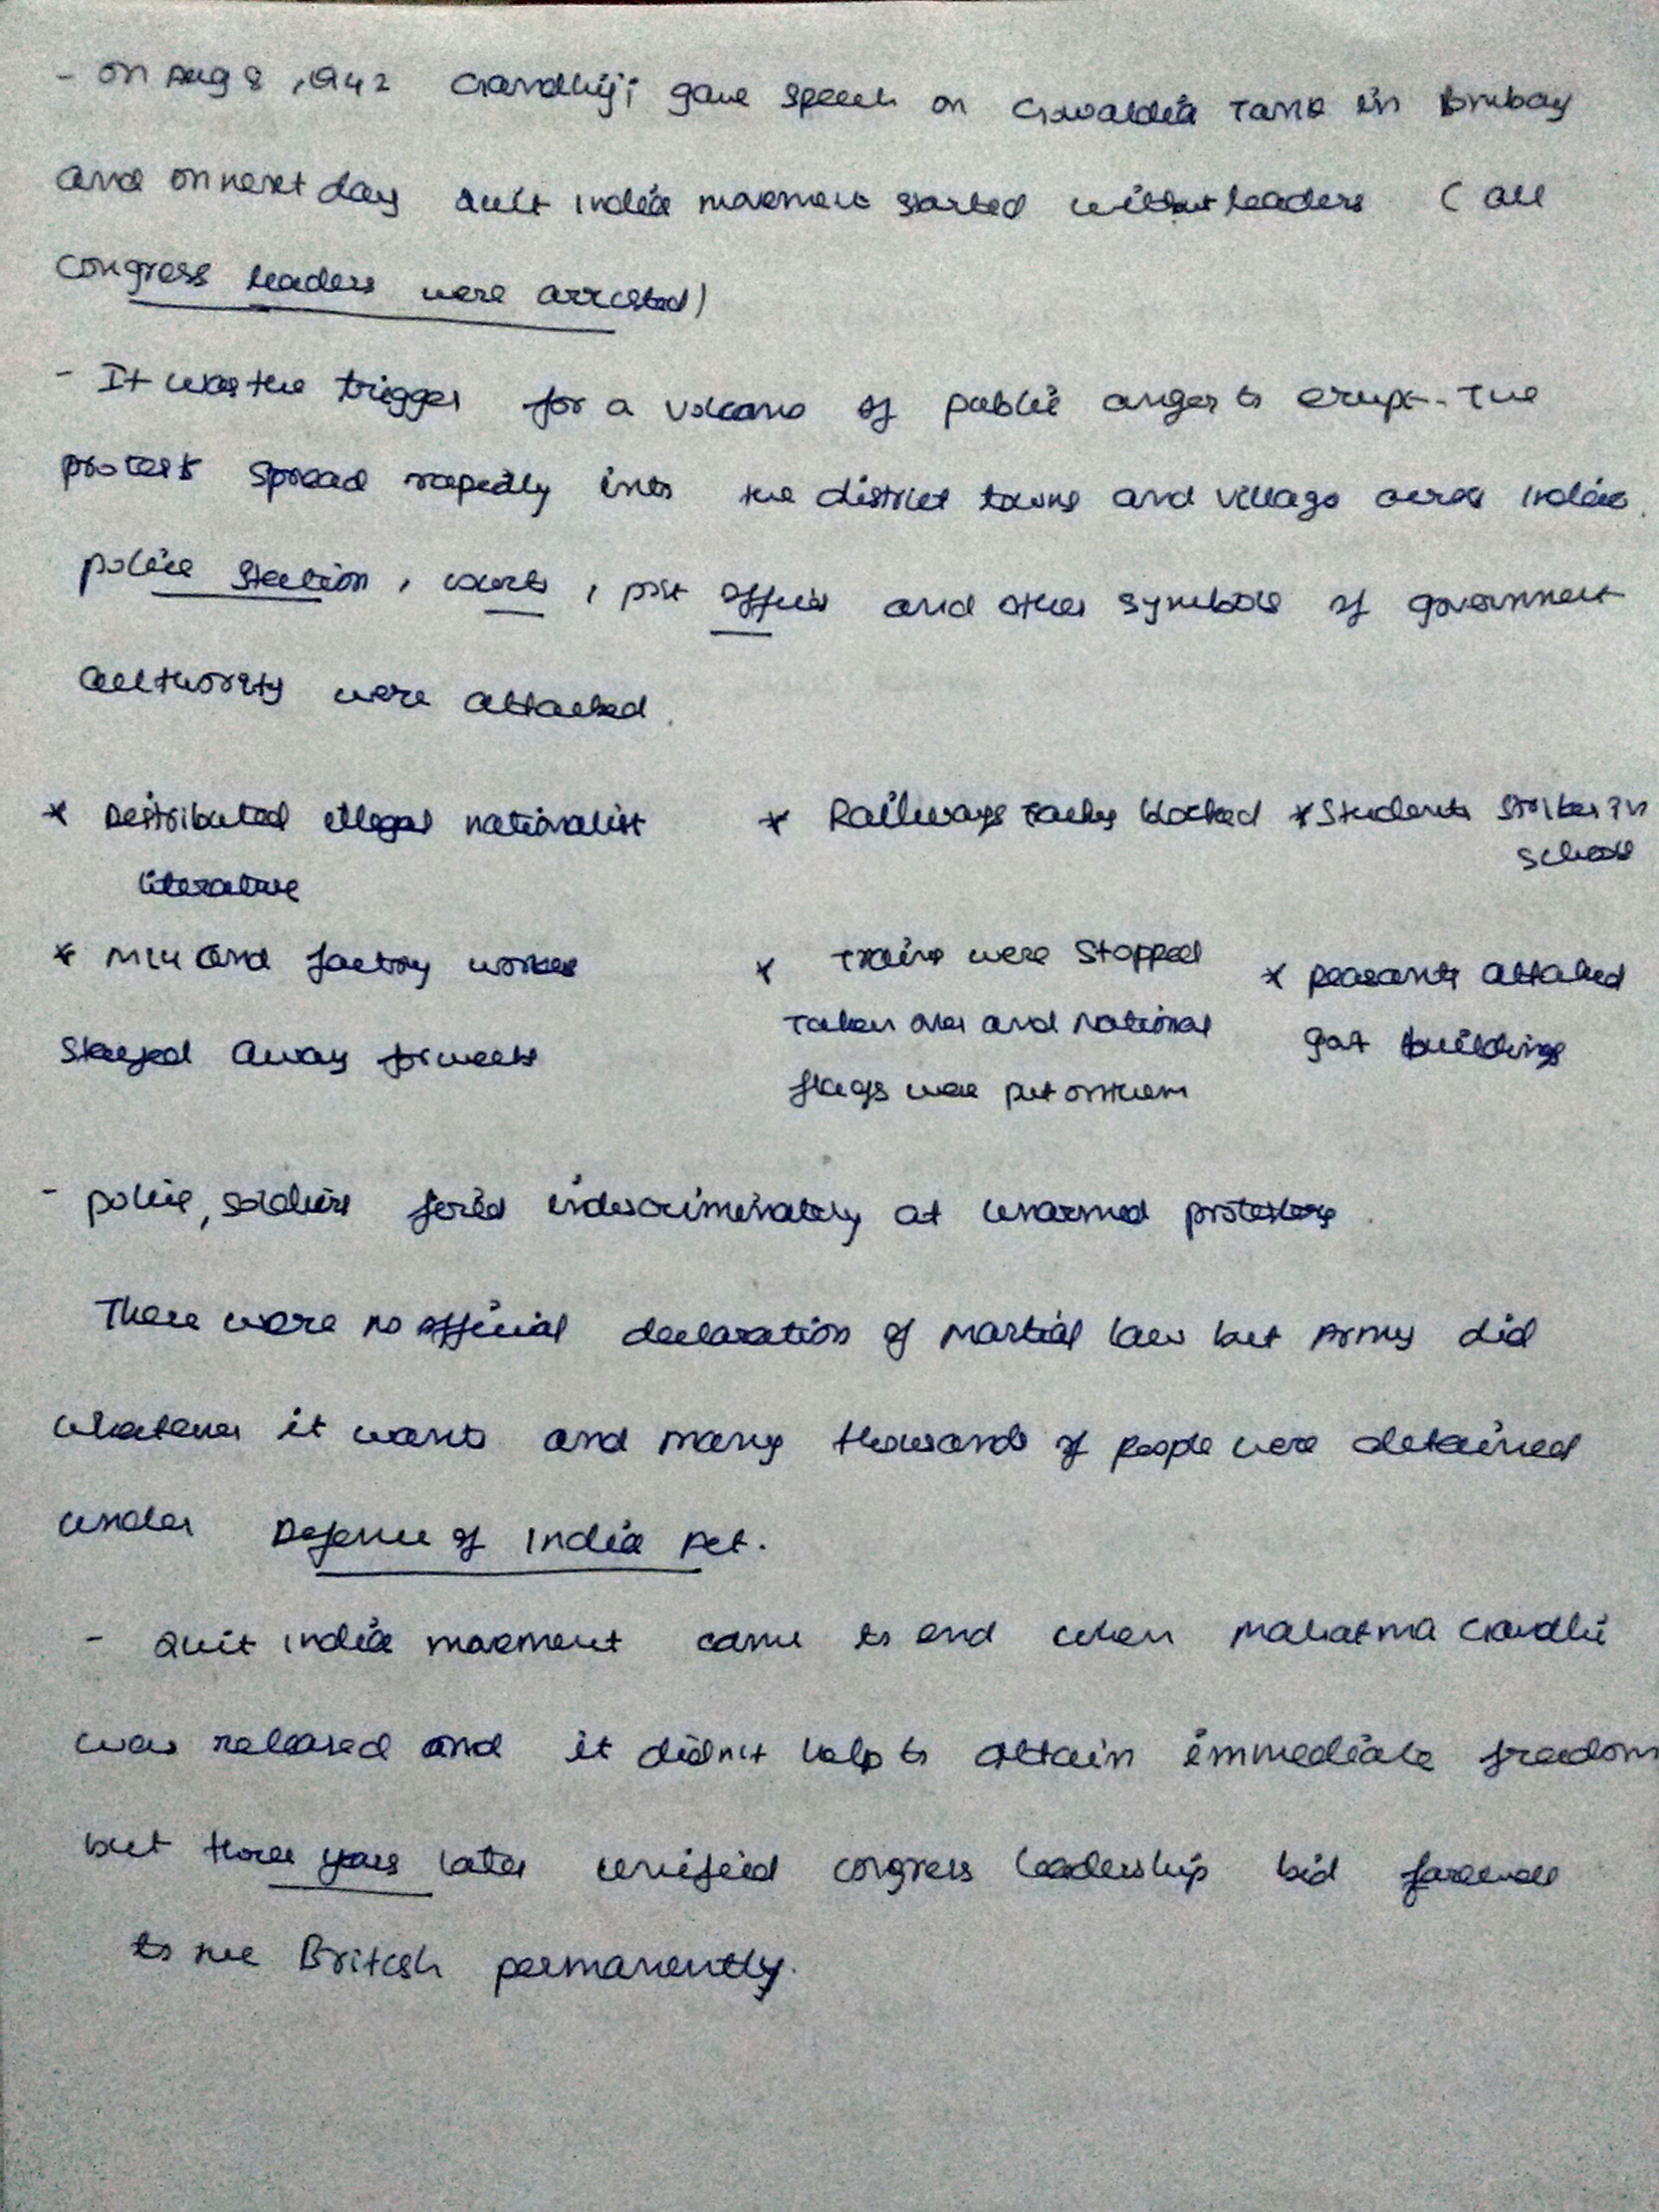 - On Aug 8, 1942 Gandhiji gave speech on Gowaldia Tank in Bombay
and on next day Quit India movement started without leaders ( all
congress leaders were arrested)
- It was the trigger for a volcano of public anger to erupt. The
protest spread rapidly into the district towns and village across India.
police station, courts, post offices and other symbols of government
authority were attacked.
* Distributed illegal nationalist
literature
* Mill and factory worker
stayed away for weeks
* Railways tracks blocked
* Trains were stopped
Taken over and national
flags were put on them
* Students strikes in
school
* peasants attacked
govt buildings
- police, soldiers fired indiscriminately at unarmed protesters.
There were no official declaration of martial law but Army did
whatever it wants and many thousands of people were detained
under Defence of India Act.
- Quit India movement came to end when Mahatma Gandhi
was released and it didn't help to attain immediate freedom
but three years later unified congress leadership bid farewell
to the British permanently.